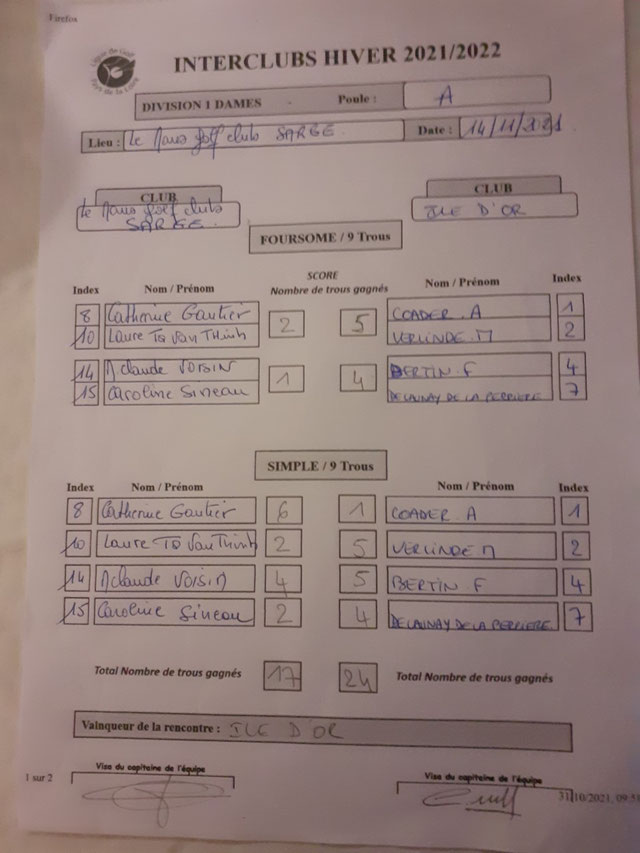 Firefox
Ligue de Golf
Pays de la Loire
INTERCLUBS HIVER 2021/2022
DIVISION 1 DAMES - Poule : A
Lieu : Le Mans golf clubs SARGE. Date : 14/11/2021
CLUB CLUB
Le Mans golf clubs ILE D'OR
SARGE.
FOURSOME / 9 Trous
SCORE
Index Nom / Prénom Nombre de trous gagnés Nom / Prénom Index
8 Catherine Gautier 2 5 COADER.A 1
10 Laure TO Van Thinh VERLINDE.M 2
14 M claude VOISIN 1 4 BERTIN.F 4
15 Caroline Sineau DELAUNAY DE LA PERRIERE 7
SIMPLE / 9 Trous
Index Nom / Prénom Nom / Prénom Index
8 Catherine Gautier 6 1 COADER.A 1
10 Laure TO Van Thinh 2 5 VERLINDE M 2
14 M claude VOISIN 4 5 BERTIN.F 4
15 Caroline Sineau 2 4 DELAUNAY DE LA PERRIERE 7
Total Nombre de trous gagnés 17 24 Total Nombre de trous gagnés
Vainqueur de la rencontre : ILE D'OR
Visa du capitaine de l'équipe Visa du capitaine de l'équipe
1 sur 2 31/10/2021, 09:5